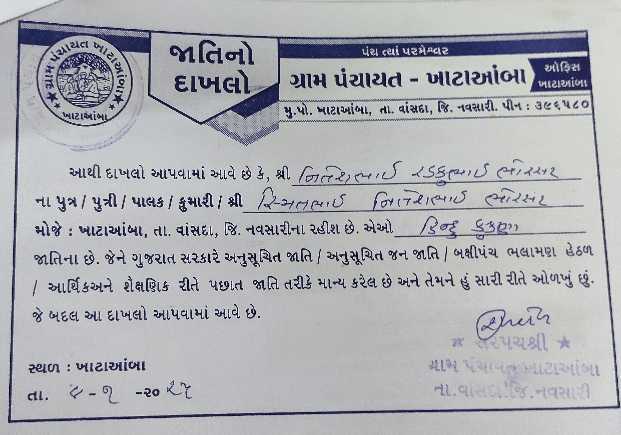 ગ્રામ પંચાયત ખાટાઆંબા
ખાટાઆંબા
જાતિનો
દાખલો
પંચ ત્યાં પરમેશ્વર
ગ્રામ પંચાયત - ખાટાઆંબા
ઓફિસ
ખાટાઆંબા
મુ.પો. ખાટાઆંબા, તા. વાંસદા, જિ. નવસારી. પીન : ૩૯૬૫૮૦
આથી દાખલો આપવામાં આવે છે કે, શ્રી નિતેશભાઈ રડકુભાઈ ભોરસર
ના પુત્ર / પુત્રી / પાલક / કુમારી / શ્રી નિતેશભાઈ ભોરસર
મોજે : ખાટાઆંબા, તા. વાંસદા, જિ. નવસારીના રહીશ છે. એઓ હિન્દુ કુકણા
જાતિના છે. જેને ગુજરાત સરકારે અનુસૂચિત જાતિ / અનુસૂચિત જન જાતિ / બક્ષીપંચ ભલામણ હેઠળ
/ આર્થિકઅને શૈક્ષણિક રીતે પછાત જાતિ તરીકે માન્ય કરેલ છે અને તેમને હું સારી રીતે ઓળખું છું.
જે બદલ આ દાખલો આપવામાં આવે છે.
સરપંચશ્રી
સ્થળ : ખાટાઆંબા
ગ્રામ પંચાયત ખાટાઆંબા
તા. -૨૦
તા.વાંસદા.જિ.નવસારી